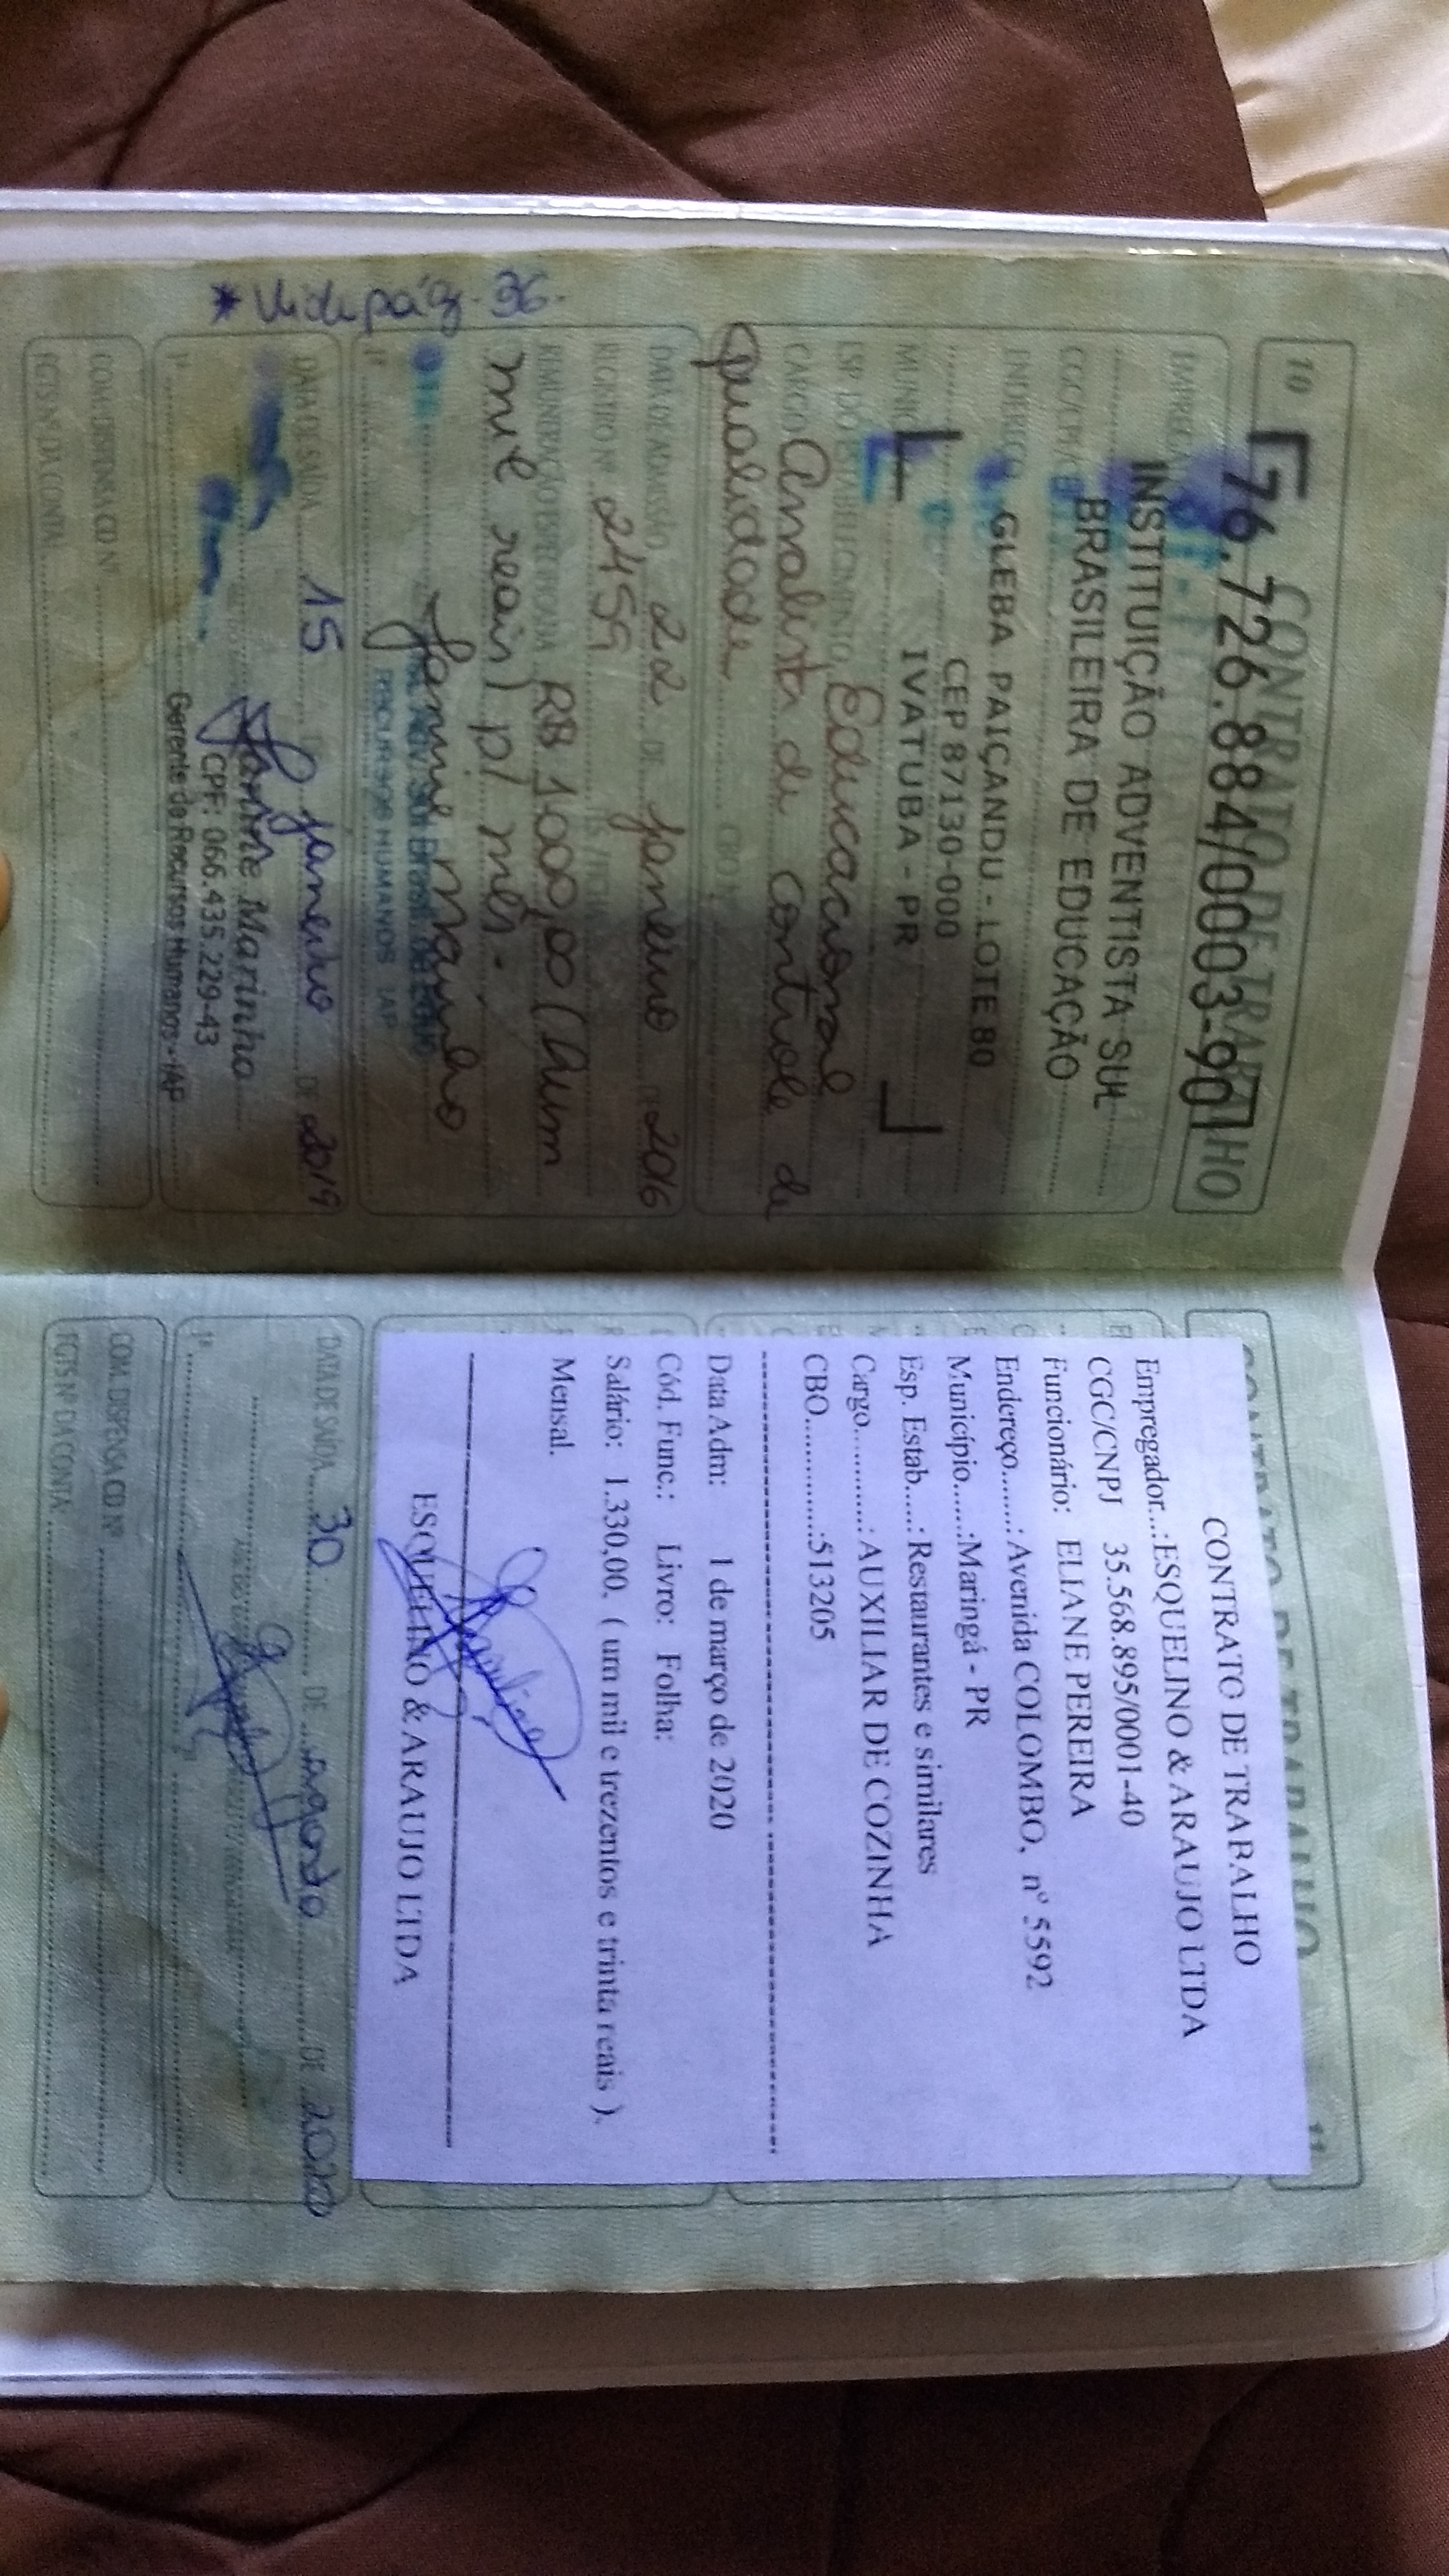 * Vide pág. 36.
10
CONTRATO DE TRABALHO
76.726.884/0003-90
INSTITUIÇÃO ADVENTISTA SUL
BRASILEIRA DE EDUCAÇÃO
GLEBA PAIÇANDU - LOTE 80
CEP 87130-000
IVATUBA - PR
Educacional
CARGO Analista de controle de
qualidade
DATA DE ADMISSÃO 22 DE janeiro DE 2016
REGISTRO Nº 2459 FLS./FICHA
REMUNERAÇÃO ESPECIFICADA R$ 1.000,00 (Hum
mil reais) p/ mês.
Janine Marinho
RECURSOS HUMANOS IAP
DATA DE SAÍDA 15 janeiro DE 2019
Janine Marinho
CPF: 066.435.229-43
Gerente de Recursos Humanos - IAP
COM. DISPENSA CD Nº
FGTS Nº DA CONTA
11
CONTRATO DE TRABALHO
CONTRATO DE TRABALHO
Empregador...:ESQUELINO & ARAUJO LTDA
CGC/CNPJ 35.568.895/0001-40
Funcionário: ELIANE PEREIRA
Endereço.......: Avenida COLOMBO, nº 5592
Município......:Maringá - PR
Esp. Estab.....: Restaurantes e similares
Cargo...........: AUXILIAR DE COZINHA
CBO............:513205
Data Adm: 1 de março de 2020
Cód. Func.: Livro: Folha:
Salário: 1.330,00, ( um mil e trezentos e trinta reais ).
Mensal.
ESQUELINO & ARAUJO LTDA
DATA DE SAÍDA 30 DE agosto DE 2020
COM. DISPENSA CD Nº
FGTS Nº DA CONTA